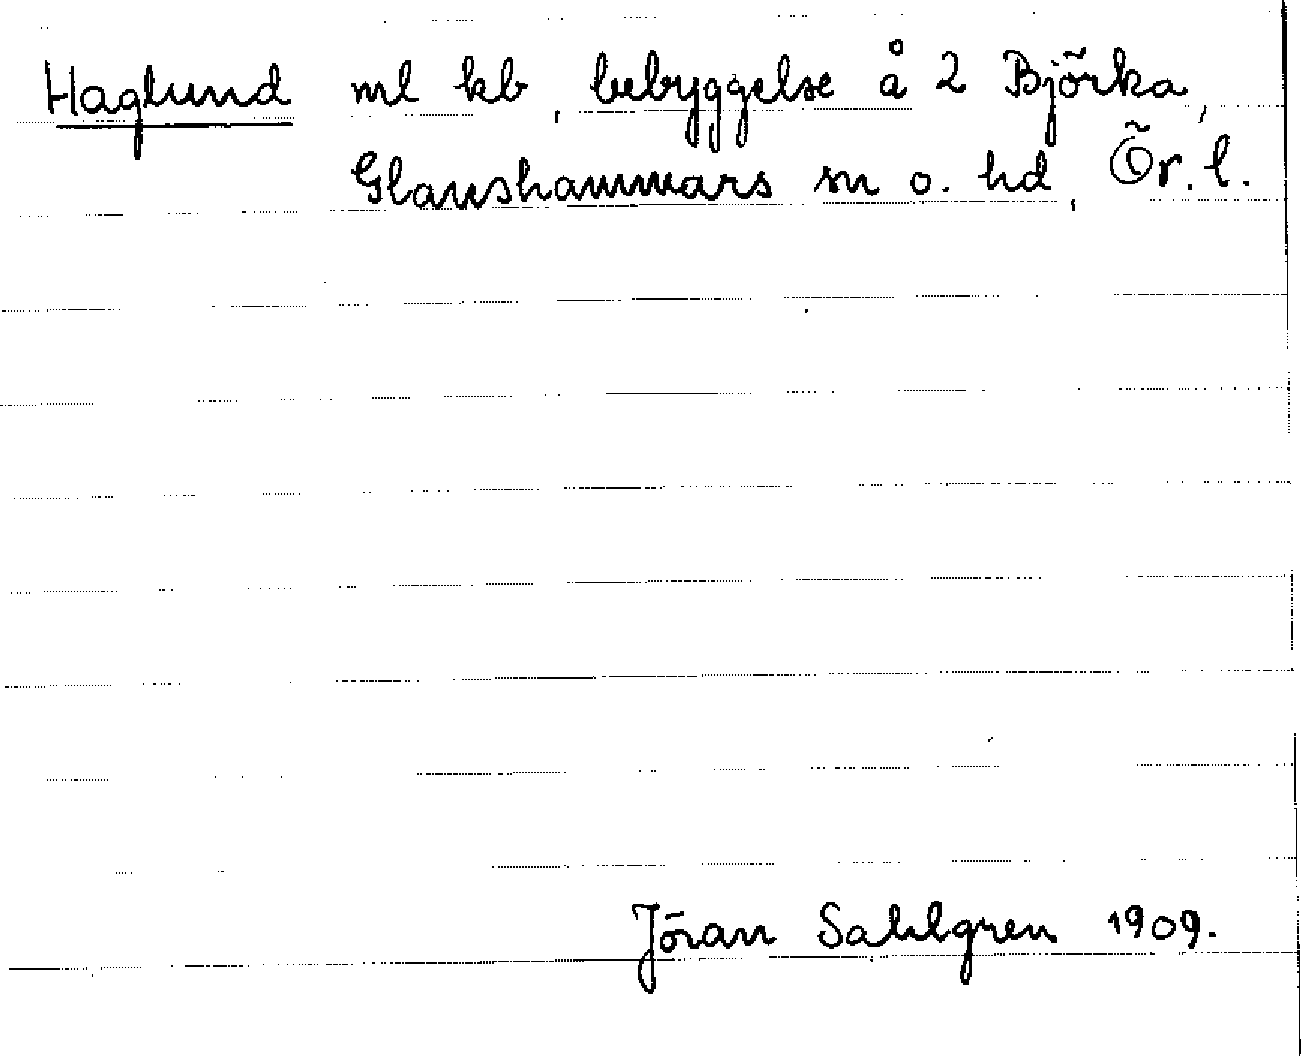 Haglund ml kb, bebyggelse å 2 Björka,
Glanshammars sn o. hd, Ör. l.
Jöran Sahlgren 1909.